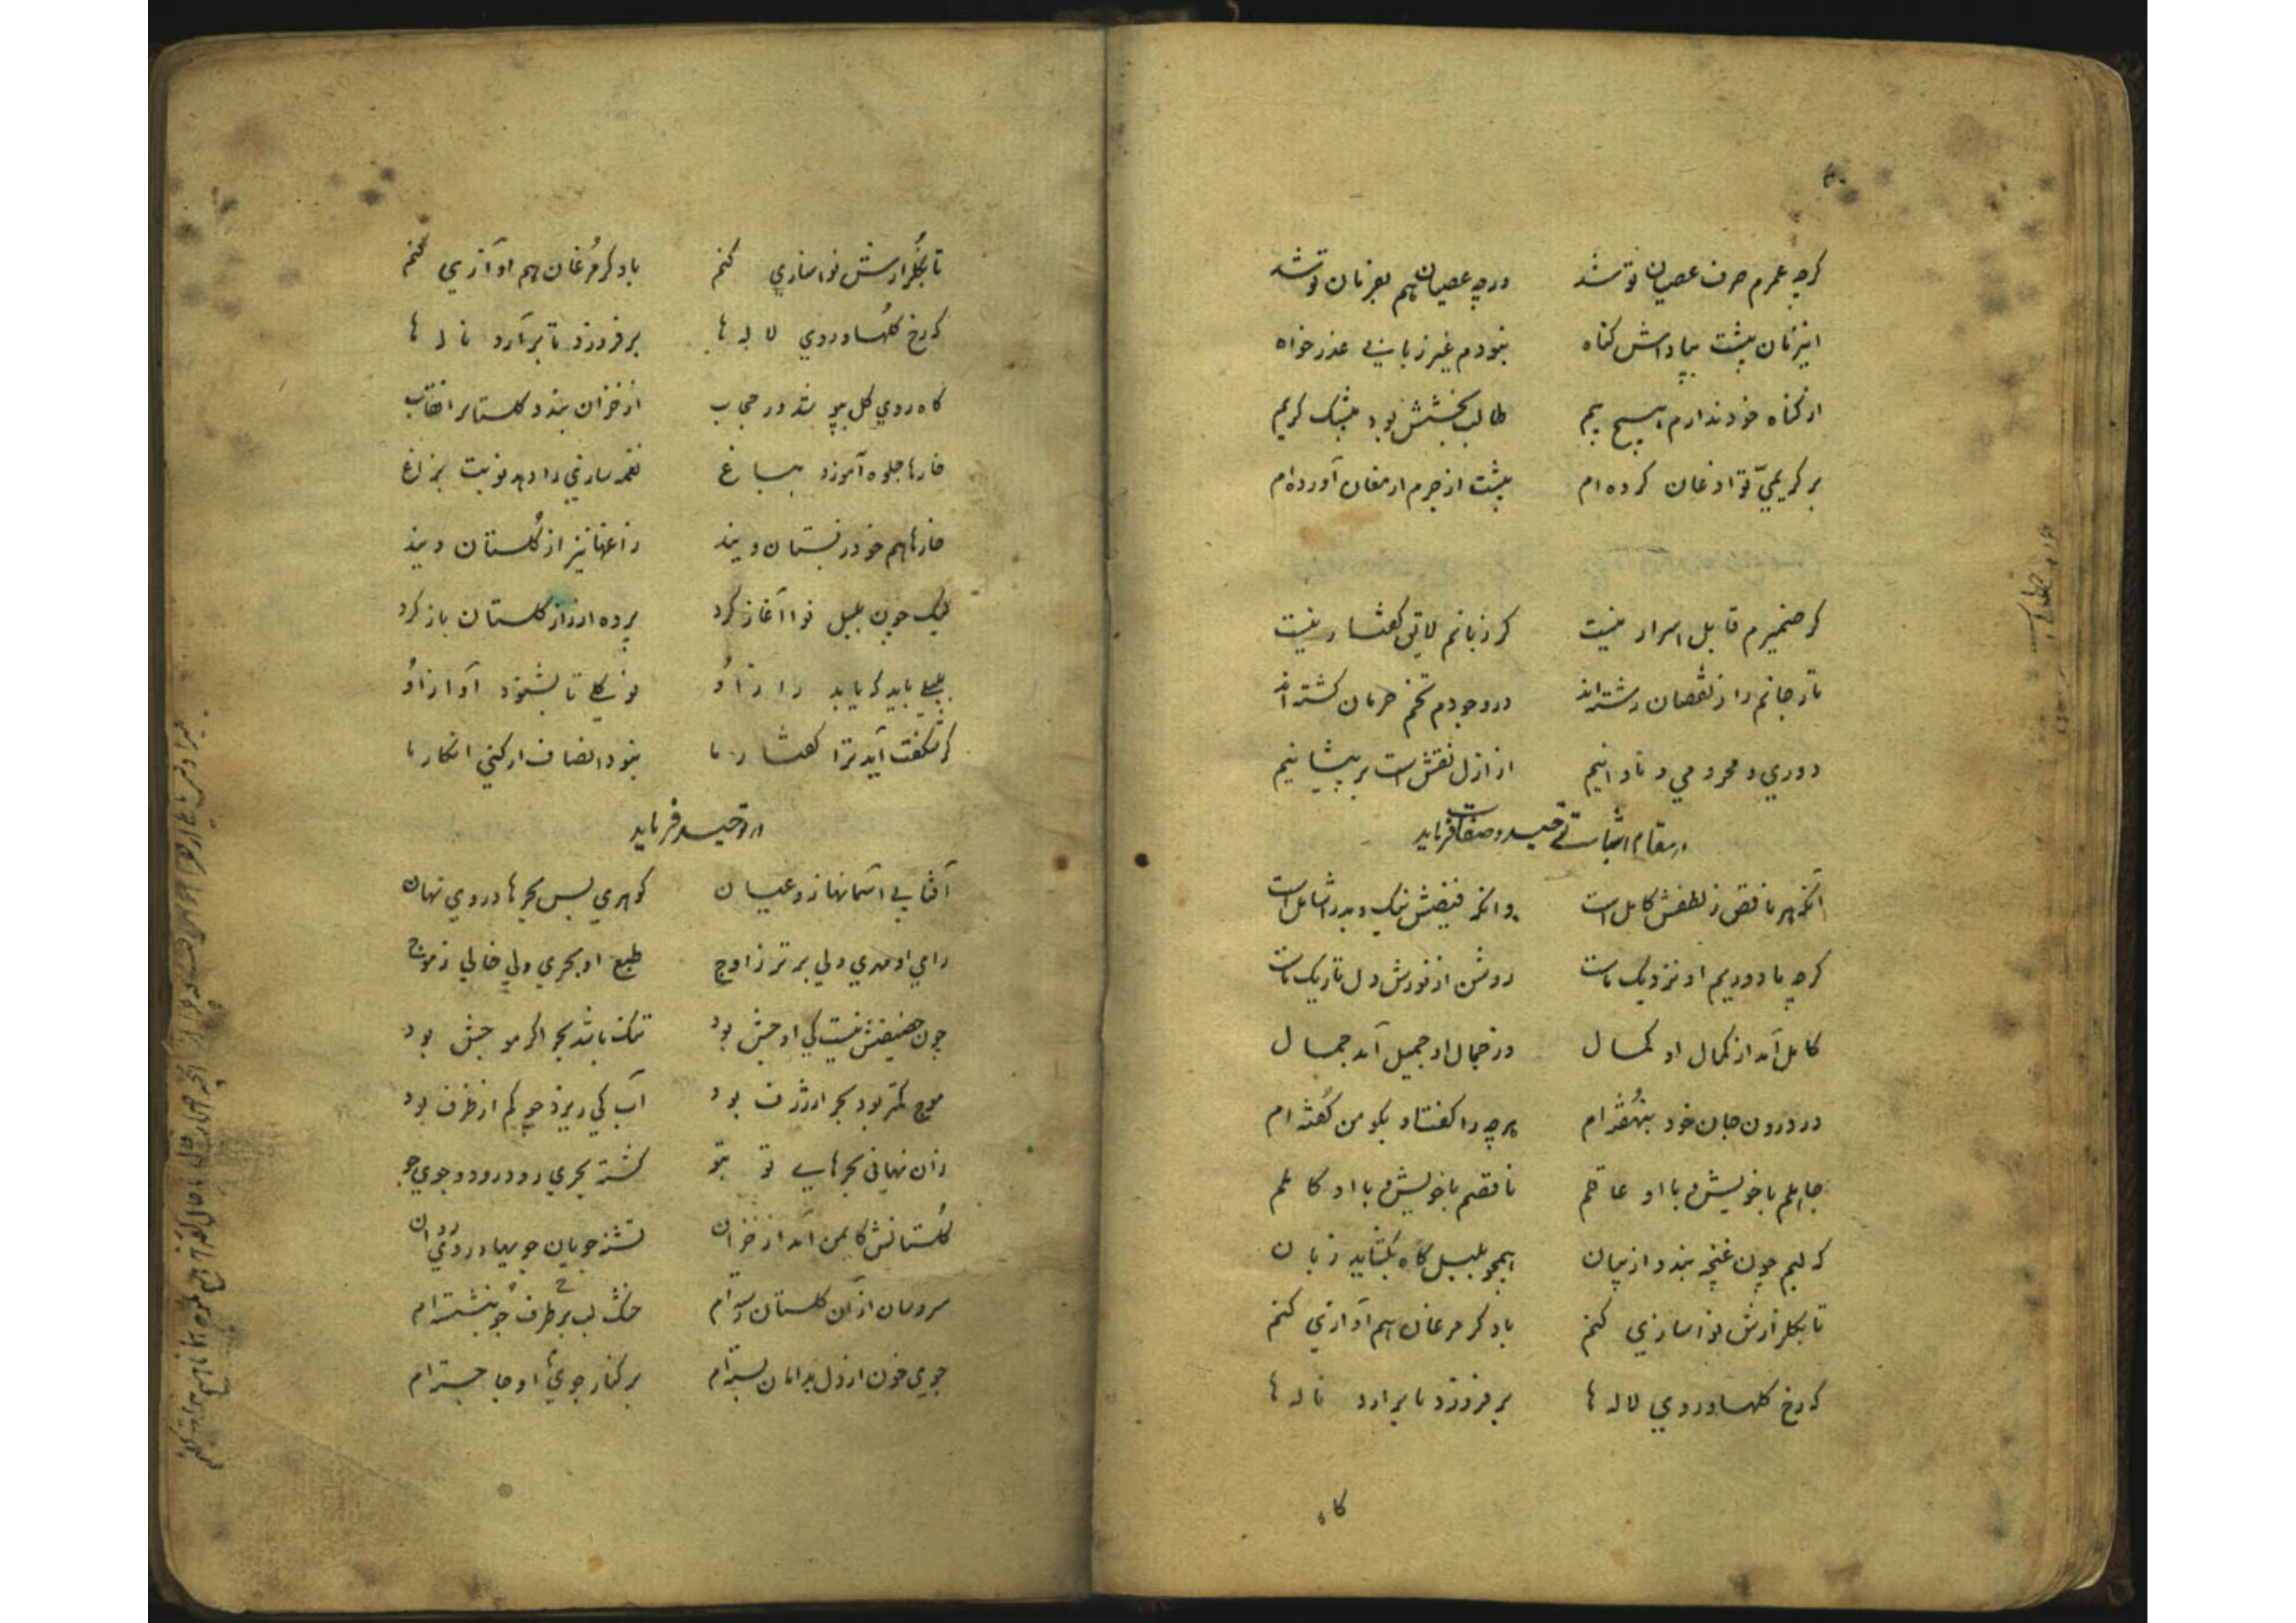 گرچه عمرم صرف عصیان تو شد ورچه عصیان هم بفرمان تو شد
این زمان پیشت بپاداش گناه نبودم غیر زبانی عذر خواه
از گناه خود ندارم هیچ بیم طالب بخشش بود بیشک کریم
بر کریمیّ تو اذعان کرده‌ام پیشت از جرم ارمغان آورده‌ام
گر ضمیرم قابل اسرار نیست گر زبانم لایق گفتار نیست
تار جانم را ز نقصان رشته‌اند در وجودم تخم حرمان کشته‌اند
دوری و محرومی و نادانیم از ازل نقش است بر پیشانیم
در مقام اثبات توحید و صفات فرماید
آنکه هر ناقص ز لطفش کامل است وانکه فیضش نیک و بد را شامل است
گرچه ما دوریم او نزدیک ماست روشن از نورش دل تاریک ماست
کامل آمد از کمال او کمال وز جمال او جمیل آمد جمال
در درون جان خود بنهفته‌ام هرچه را گفتا و بگو من گفته‌ام
جاهلم با خویش و با او عاقلم ناقصم با خویش و با او کاملم
که لبم چون غنچه بندد از بیان همچو بلبل گاه بگشاید زبان
تا بگلزارش نواسازی کنم یاد کز مرغان هم آوازی کنم
که رخ گلها و روی لاله‌ها بر فروزد تا برآرد ناله‌ها
گاه
تا بگلزارش نواسازی کنم یاد کز مرغان هم آوازی کنم
که رخ گلها و روی لاله‌ها بر فروزد تا برآرد ناله‌ها
گاه روی گل بپوشد در حجاب از خزان بندد گلستانرا نقاب
خارها جلوه آموزد بباغ نغمه سازی را دهد نوبت بزاغ
خارها هم خود ز بستان ویند زاغها نیز از گلستان ویند
لیک چون بلبل نوا آغاز کرد پرده از راز گلستان باز کرد
بلبلی باید که یابد راز او نو گلی تا بشنود آواز او
گر شگفت آید ترا گفتار ما نبود انصاف ار کنی انکار ما
در توحید فرماید
آفتابی آسمانها زو عیان گوهری بس بحرها در وی نهان
رای او مهری ولی برتر ز اوج طبع او بحری ولی خالی ز موج
چون حضیضش نیست کی اوجش بود تنگ باشد بحر اگر موجش بود
موج کمتر بود بحر ار ژرف بود آب کی ریزد چو کم از ظرف بود
زان نهانی بحرهای تو بتو گشته بحری رود رود و جوی جو
گلستانش کایمن آمد از خزان تشنه جویان جویها در وی روان
سرو سان از آن گلستان رسته‌ام خشک لب بر طرف جو بنشسته‌ام
جوی خون از دل بدامان بسته‌ام بر کنار جوی او جا جسته‌ام